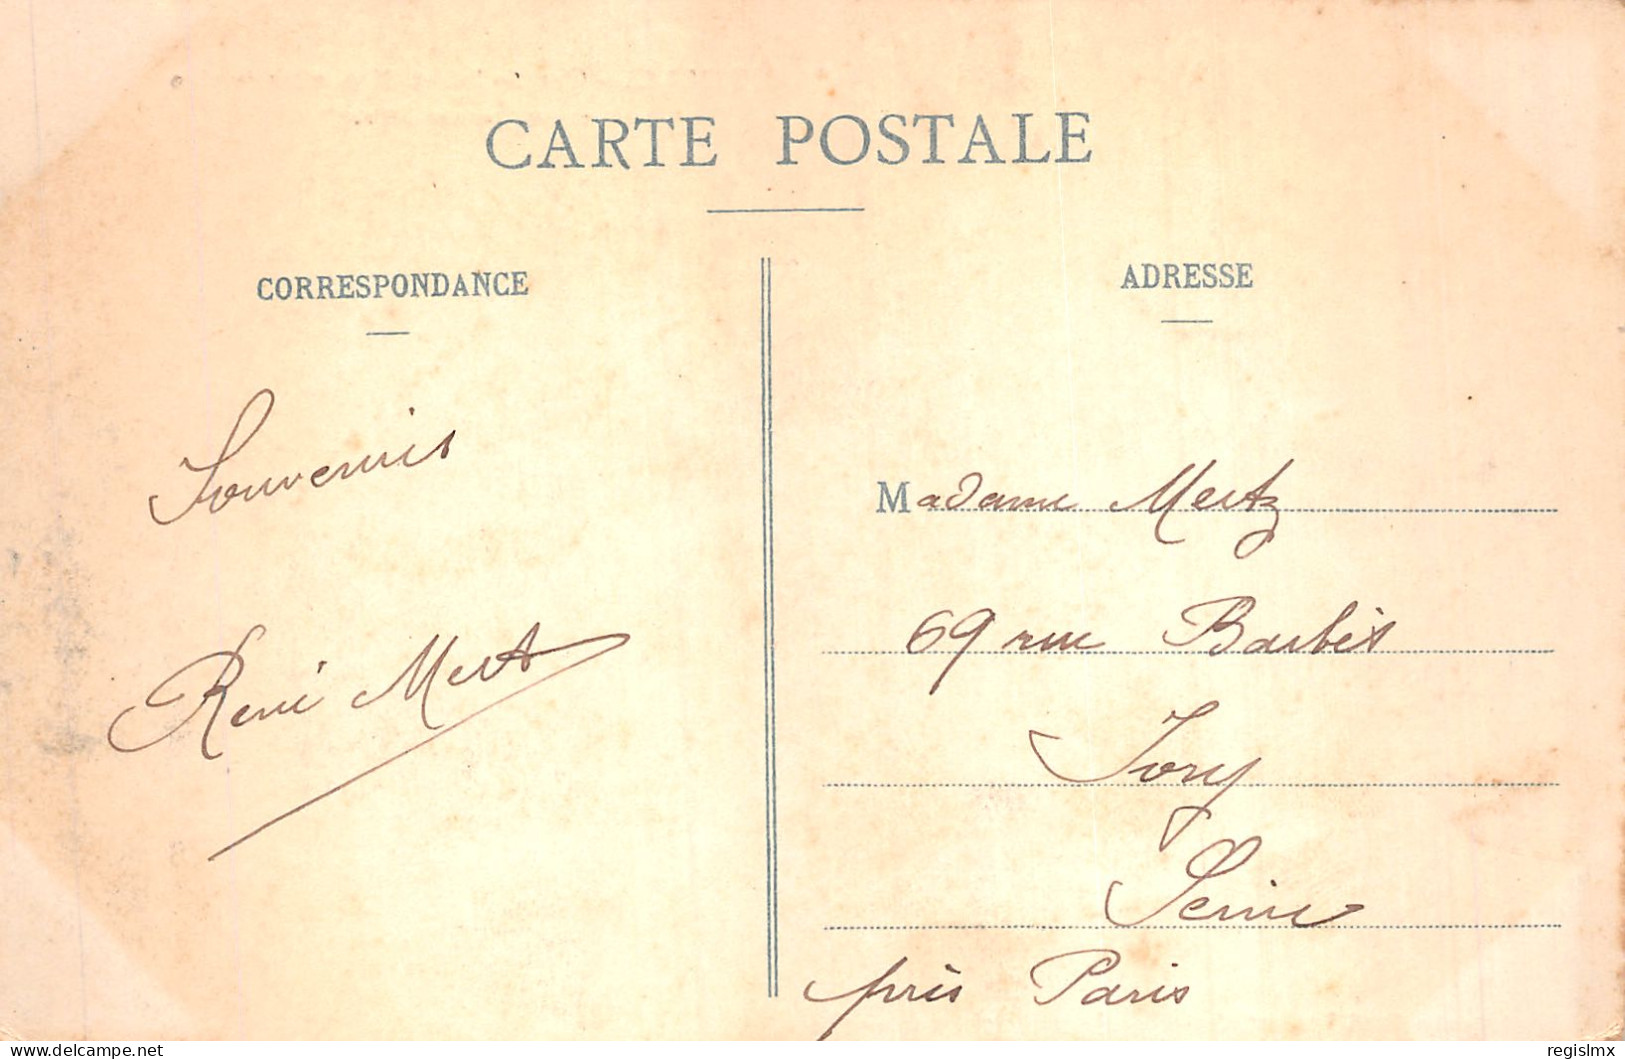 CARTE POSTALE
CORRESPONDANCE
ADRESSE
Souvenirs
René Mertz
Madame Mertz
69 rue Barbès
Ivry
Seine
près Paris
delcampe.net
regislmx